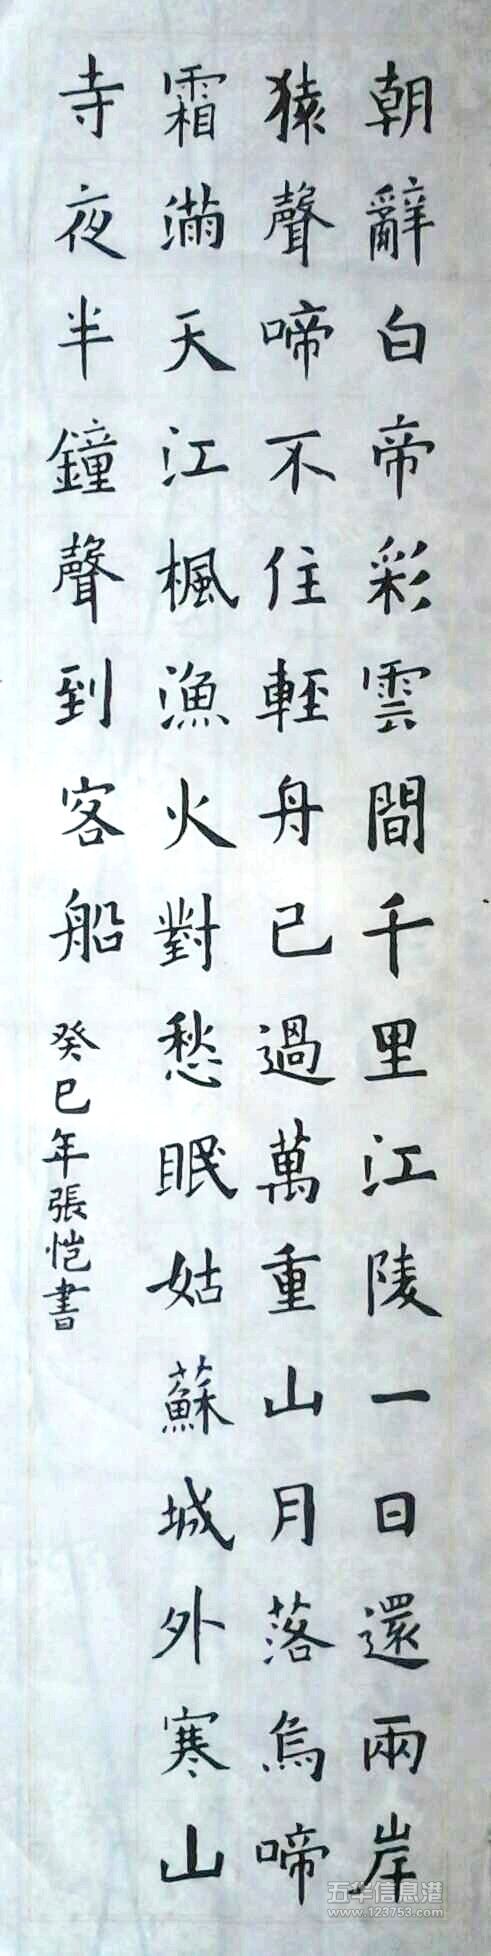 朝辭白帝彩雲間千里江陵一日還兩岸
猿聲啼不住輕舟已過萬重山月落烏啼
霜滿天江楓漁火對愁眠姑蘇城外寒山
寺夜半鐘聲到客船
癸巳年張愷書
五华信息港
www.123753.com